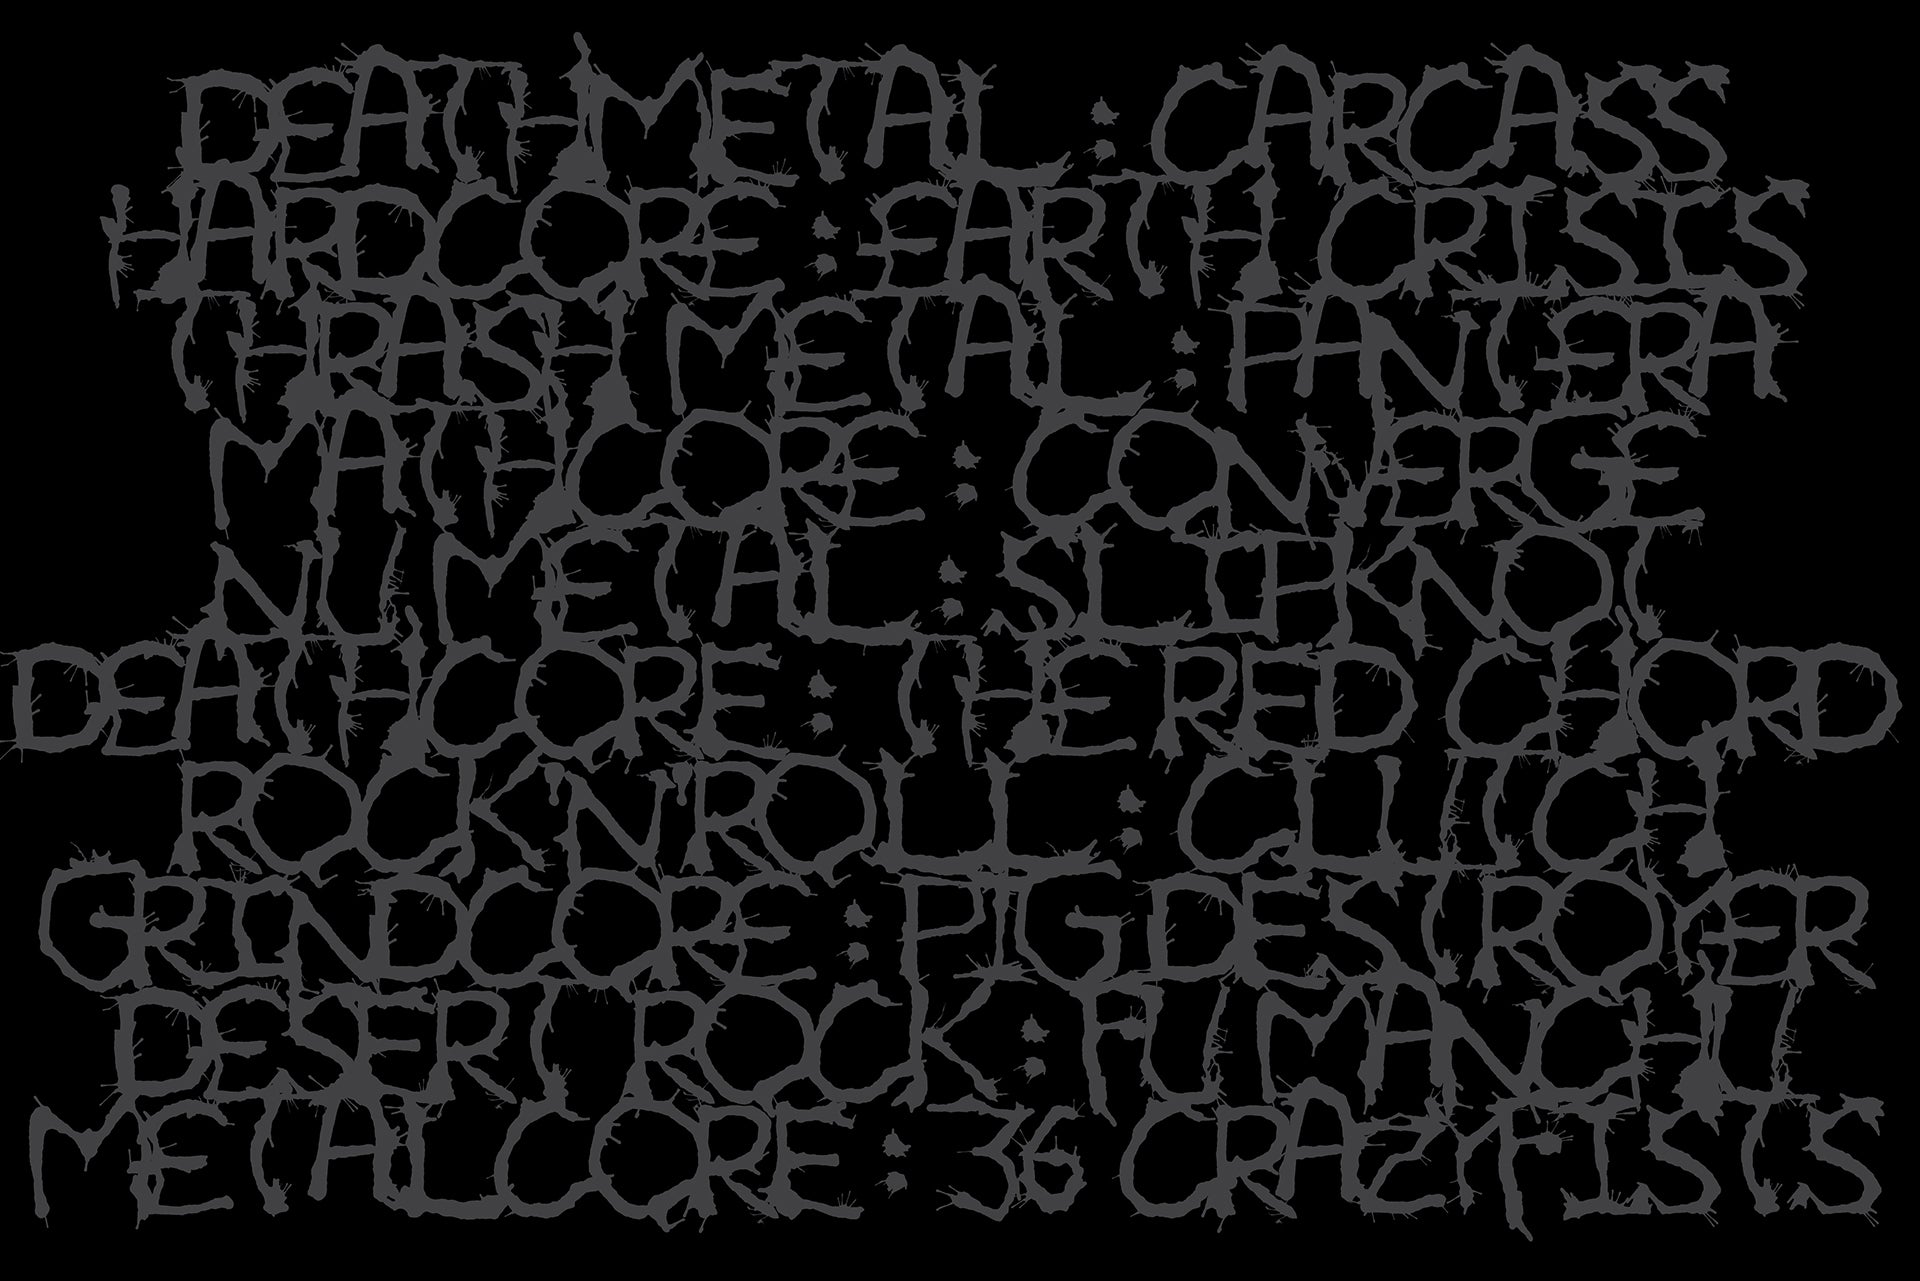 DEATH METAL : CARCASS
HARDCORE : EARTH CRISIS
THRASH METAL : PANTERA
MATHCORE : CONVERGE
NU METAL : SLIPKNOT
DEATHCORE : THE RED CHORD
ROCK'N'ROLL : CLUTCH
GRINDCORE : PIG DESTROYER
DESERT ROCK : FU MANCHU
METALCORE : 36 CRAZYFISTS